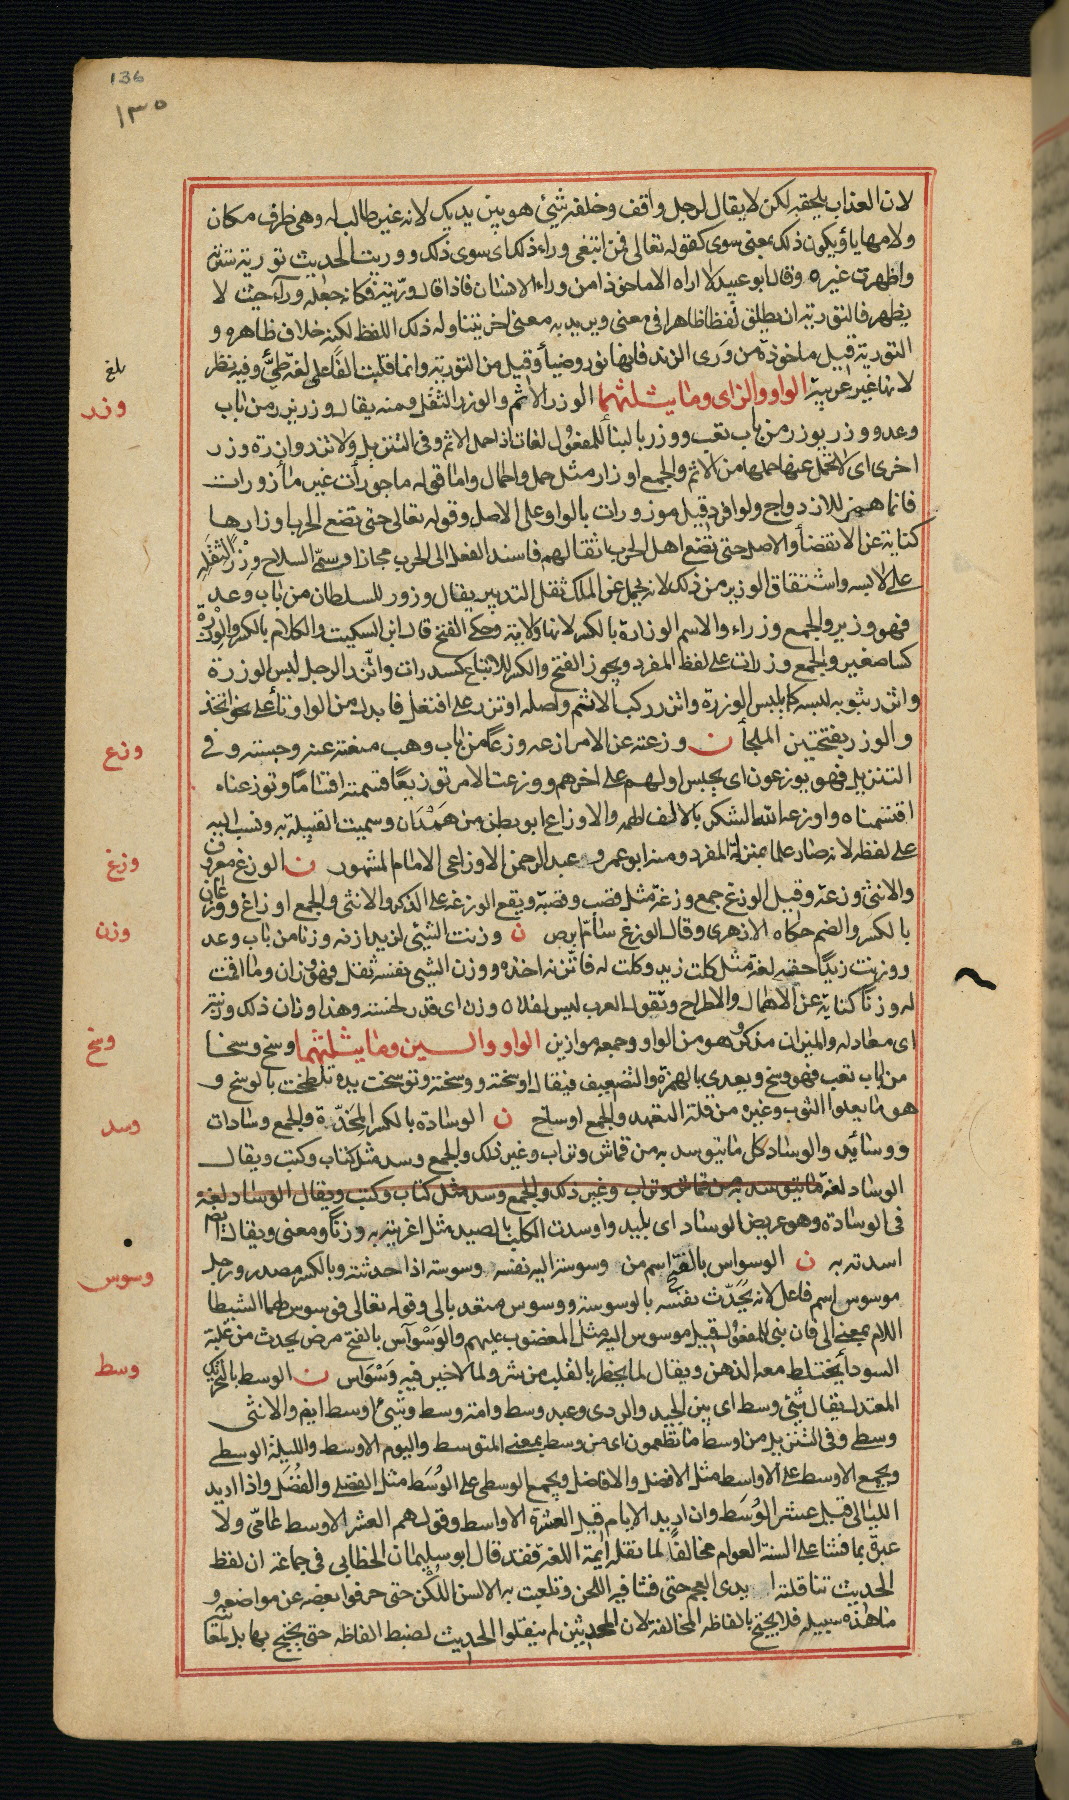 136
١٣٥
لان العذاب يلحقه لكن لا يقال لرجل واقف وخلفه شيئ هو بين يديك لانه غير طالب له وهى ظرف مكان
ولامها ياؤ يكون ذلك بمعنى سوى كقوله تعالى فمن ابتغى وراء ذلك اى سوى ذلك ووريت الحديث تورية سترته
واظهرت غيره وقال ابو عبيد لا اراه الا ماخوذا من وراء الانسان فاذا قال وريته فكانه جعله وراءه حيث لا
يظهر فالتورية ان يطلق لفظا ظاهرا فى معنى ويريد به معنى اخر يتناوله ذلك اللفظ لكنه خلاف ظاهره و
التورية قيل ماخوذة من ورى الزند فانها نور وضيأ وقيل من التورية وانما قلبت الفا على لغة طيئ وفيه نظر
بلغ
لانها غير عربية الواو والزاى وما يثلثهما الوزر الاثم والوزر الثقل ومنه يقال وزر يزر من باب
وزر
وعد ووزر يوزر من باب تعب ووزر بالبنأ للمفعول لغات اذا حمل الاثم وفى التنزيل ولا تزر وازرة وزر
اخرى اى لا تحمل عنها حملها من الاثم والجمع اوزار مثل حمل واحمال واما قوله ماجورات غير مأزورات
فانما همز للازدواج ولو افرد قيل موزورات بالواو على الاصل وقوله تعالى حتى تضع الحرب اوزارها
كناية عن الانقضأ والاصل حتى تضع اهل الحرب اثقالهم فاسند الفعل الى الحرب مجازا وسمى السلاح وزرا لثقله
على لابسه واشتقاق الوزير من ذلك لانه يحمل عن الملك ثقل التدبير يقال وزر للسلطان من باب وعد
فهو وزير والجمع وزراء والاسم الوزارة بالكسر لانها ولاية وحكى الفتح قال ابن السكيت والكلام بالكسر والوزرة
كسا صغير والجمع وزرات على لفظ المفرد ويجوز الفتح والكسر للاتباع كسدرات واتزر الرجل لبس الوزرة
واتزر بثوبه لبسه كما يلبس الوزرة واتزر ركب الاثم واصله اوتزر على افتعل فابدل من الواو تأ على نحو اتخذ
والوزر بفتحتين الملجأ ن وزعته عن الامر ازعه وزعا من باب وهب منعته عنه وحبسته وفى
وزع
التنزيل فهو يوزعون اى يحبس اولهم على اخرهم ووزعت الامر توزيعا قسمته اقساما وتوزعناه
اقتسمناه واوزعه الله الشكر بالالف الهمه والاوزاع ابو بطن من همدان وسميت القبيلة به ونسب اليه
على لفظه لانه صار علما بمنزلة المفرد ومنه ابو عمرو عبد الرحمن الاوزاعى الامام المشهور ن الوزغ معروف
وزغ
والانثى وزغة وقيل الوزغ جمع وزغة مثل قصب وقصبة ويقع الوزغة على الذكر والانثى والجمع اوزاغ ووزغان
بالكسر والضم حكاه الازهرى وقال الوزغ سام ابرص ن وزنت الشيئ لزيد ازنه وزنا من باب وعد
وزن
ووزنت زيدا حقه لغة مثل كلت زيد وكلت له فاتزنه اخذه ووزن الشيئ نفسه ثقل فهو وزان وما اقمت
له وزنا كناية عن الاهمال والاطراح وتقول العرب ليس لفلان وزن اى قدر لخسته وهذا وزان ذلك وزنته
اى معادله والميزان مذكر وهو من الواو وجمعه موازين الواو والسين وما يثلثهما وسخ وسخا
وسخ
من باب تعب فهو وسخ ويعدى بالهمزة والتضعيف فيقال اوسخته ووسخته وتوسخت يده تلطخت بالوسخ و
هو ما يعلوا الثوب وغيره من قلة التعهد والجمع اوساخ ن الوسادة بالكسر المخدة والجمع وسادات
وسد
ووسائد والوساد كل ما يتوسد به من قماش وتراب وغير ذلك والجمع وسد مثل كتاب وكتب ويقال
الوساد لغة ما يتوسد به من قماش وتراب وغير ذلك والجمع وسد مثل كتاب وكتب ويقال الوساد لغة
فى الوسادة وهو عريض الوساد اى بليد واوسدت الكلب بالصيد مثل اغريته به وزنا ومعنى ويقال ايضا
اسدته به ن الوسواس بالفتح اسم من وسوست اليه نفسه وسوسته اذا حدثته وبالكسر مصدر ورجل
وسوس
موسوس اسم فاعل لانه يحدث نفسه بالوسوسة ووسوس متعد بالى وقوله تعالى فوسوس لهما الشيطا
اللام بمعنى الى فان بنى للمفعول قيل موسوس اليه مثل المغضوب عليهم والوسواس بالفتح مرض يحدث من غلبة
السودأ يختلط معه الذهن ويقال لما يخطر بالقلب من شر ولما لا خير فيه وسواس ن الوسط بالتحريك
وسط
المعتدل يقال شيئ وسط اى بين الجيد والردى وعبد وسط وامة وسط وشيئ اوسط ايض والانثى
وسطى وفى التنزيل من اوسط ما تطعمون اى من وسط بمعنى المتوسط واليوم الاوسط والليلة الوسطى
ويجمع الاوسط على الاواسط مثل الافضل والافاضل ويجمع الوسطى على الوسط مثل الفضلى والفضل واذا اريد
الليالى قيل عشر الوسط وان اريد الايام قيل العشرة الاواسط وقولهم العشر الاوسط عامى ولا
عبرة بما فشا على السنة العوام مخالفا لما نقله ايمة اللغة فقد قال ابو سليمان الخطابى فى جماعة ان لفظ
الحديث تناقلته ايدى العجم حتى فشا فيه اللحن وتلعبت به الالسن اللكن حتى حرفوا بعضه عن مواضعه و
ما هذه سبيله فلا يحتج بالفاظه المخالفة لان المحدثين لم ينقلوا الحديث لضبط الفاظه حتى يحتج بها بل